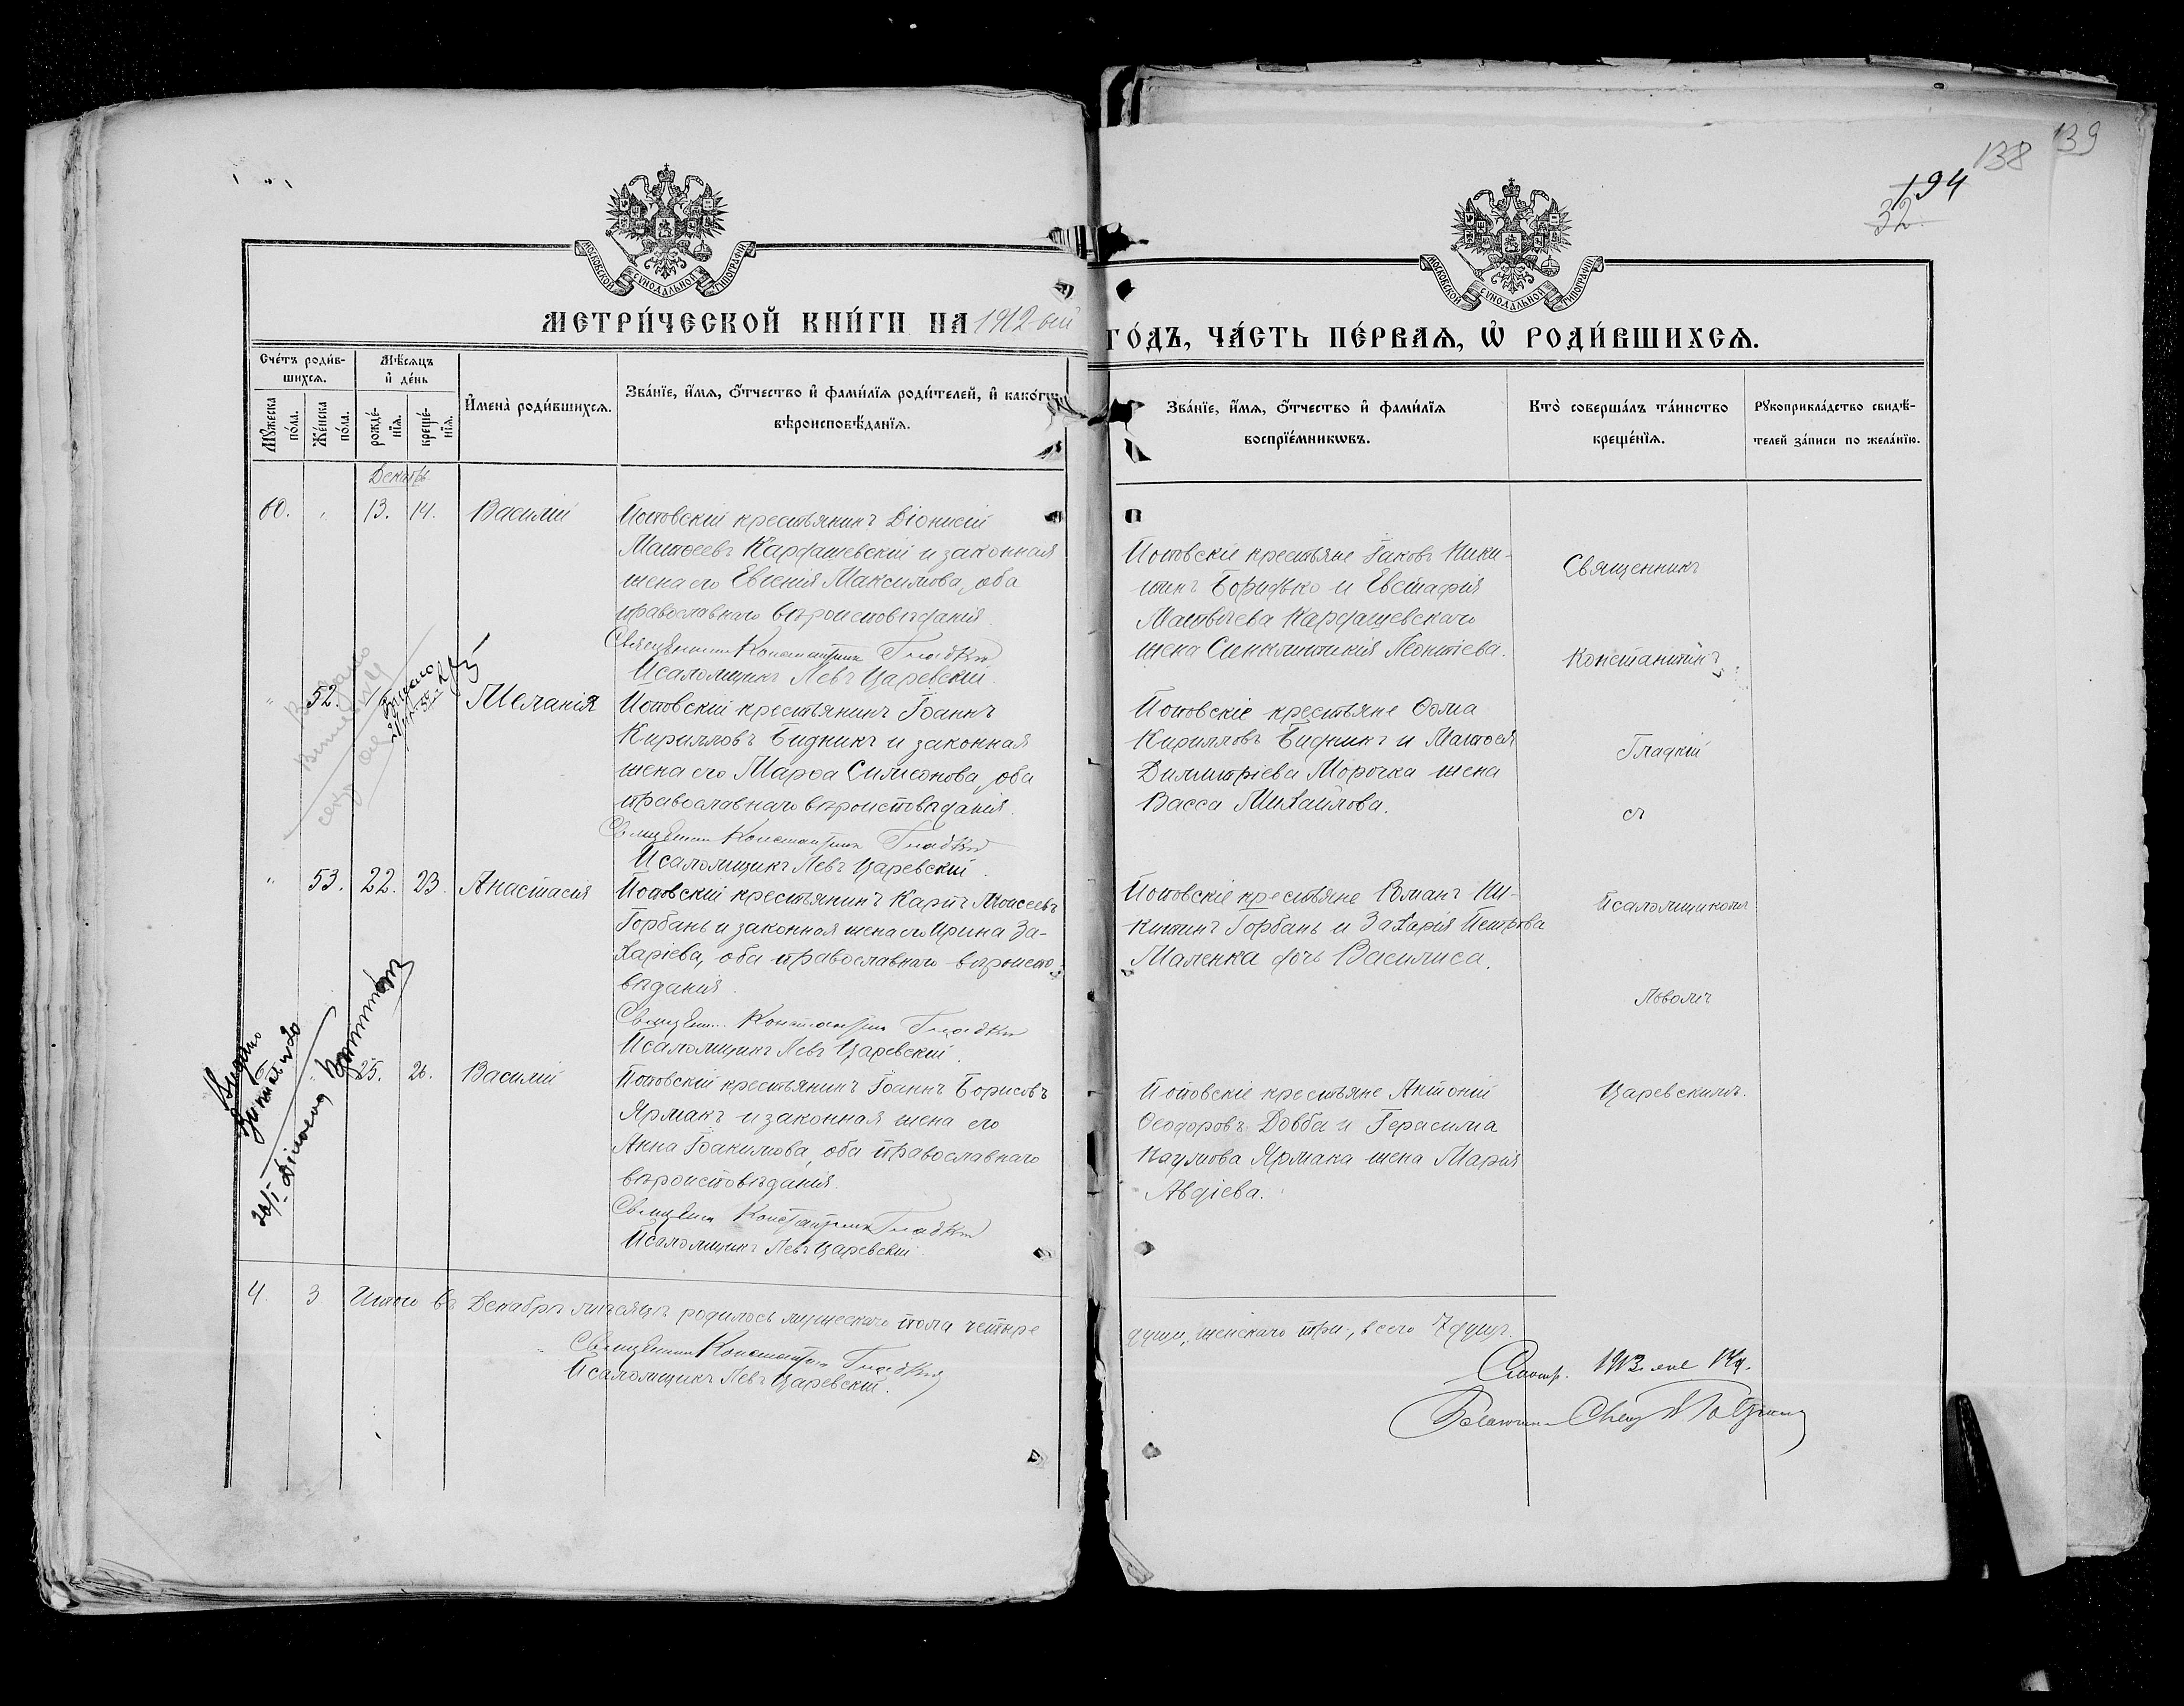 139
138
194
32
МОСКОВСКОЙ СѴНОДАЛЬНОЙ ТИПОГРАФІИ
МОСКОВСКОЙ СѴНОДАЛЬНОЙ ТИПОГРАФІИ
МЕТРИ́ЧЕСКОЙ КНИ́ГИ НА 1912-ый
ГО́ДЪ, ЧА́СТЬ ПЕ́РВАѦ, Ѡ҆ РОДИ́ВШИХСѦ.
Сче́тъ роди́в-
шихсѧ.
Мѣ́сѧцъ
и҆ де́нь
Мꙋ́жеска
по́ла.
Же́нска
по́ла.
рожде́-
нїѧ.
креще́-
нїѧ.
И҆мена̀ роди́вшихсѧ.
Зва́нїе, и҆́мѧ, о҆́тчество и҆ фами́лїѧ роди́телей, и҆ како́гѡ
вѣроисповѣ́данїѧ.
Зва́нїе, и҆́мѧ, о҆́тчество и҆ фами́лїѧ
воспрїе́мникѡвъ.
Кто̀ соверша́лъ та́инство
креще́нїѧ.
Рꙋкоприкла́дство свидѣ́-
телей за́писи по жела́нїю.
Декабрь
60. 13. 14. Василий
Потовскій крестьянинъ Діонисій
Матѳеевъ Кардашевскій и законная
жена его Евгенія Максимова, оба
православнаго вѣроисповѣданія.
Священникъ Константинъ Гладкій
Псаломщикъ Левъ Царевскій.
Потовскіе крестьяне Іаковъ Ники-
тинъ Боридько и Евстафія
Матвѣева Кардашевскаго
жена Синклитикія Леонтіева.
52. Меланія
Потовскій крестьянинъ Іоаннъ
Кирилловъ Бидникъ и законная
жена его Марѳа Симеонова, оба
православнаго вѣроисповѣданія.
Священникъ Константинъ Гладкій
Псаломщикъ Левъ Царевскій.
Потовскіе крестьяне Ѳома
Кирилловъ Бидникъ и Матѳея
Димитріева Морочка жена
Васса Михайлова.
53. 22. 23. Анастасія
Потовскій крестьянинъ Карпъ Моисеевъ
Горбань и законная жена его Ирина За-
харіева, оба православнаго вѣроиспо-
вѣданія.
Священ. Константинъ Гладкій
Псаломщикъ Левъ Царевскій.
Потовскіе крестьяне Романъ Ни-
китинъ Горбань и Захарія Петрова
Маленка дочь Василиса.
25. 26. Василій
Потовскій крестьянинъ Іоаннъ Борисовъ
Ярмакъ и законная жена его
Анна Іоакимова, оба православнаго
вѣроисповѣданія.
Священникъ Константинъ Гладкій
Псаломщикъ Левъ Царевскій.
Потовскіе крестьяне Антоній
Ѳеодоровъ Довба и Герасима
Наумова Ярмака жена Марія
Авдіева.
Священникъ
Константинъ
Гладкій
съ
Псаломщикомъ
Львомъ
Царевскимъ.
4. 3 Итого въ Декабрѣ мѣсяцѣ родилось мужескаго пола четыре
души, женскаго три, всего 7 душъ.
Священникъ Константинъ Гладкій
Псаломщикъ Левъ Царевскій.
1913